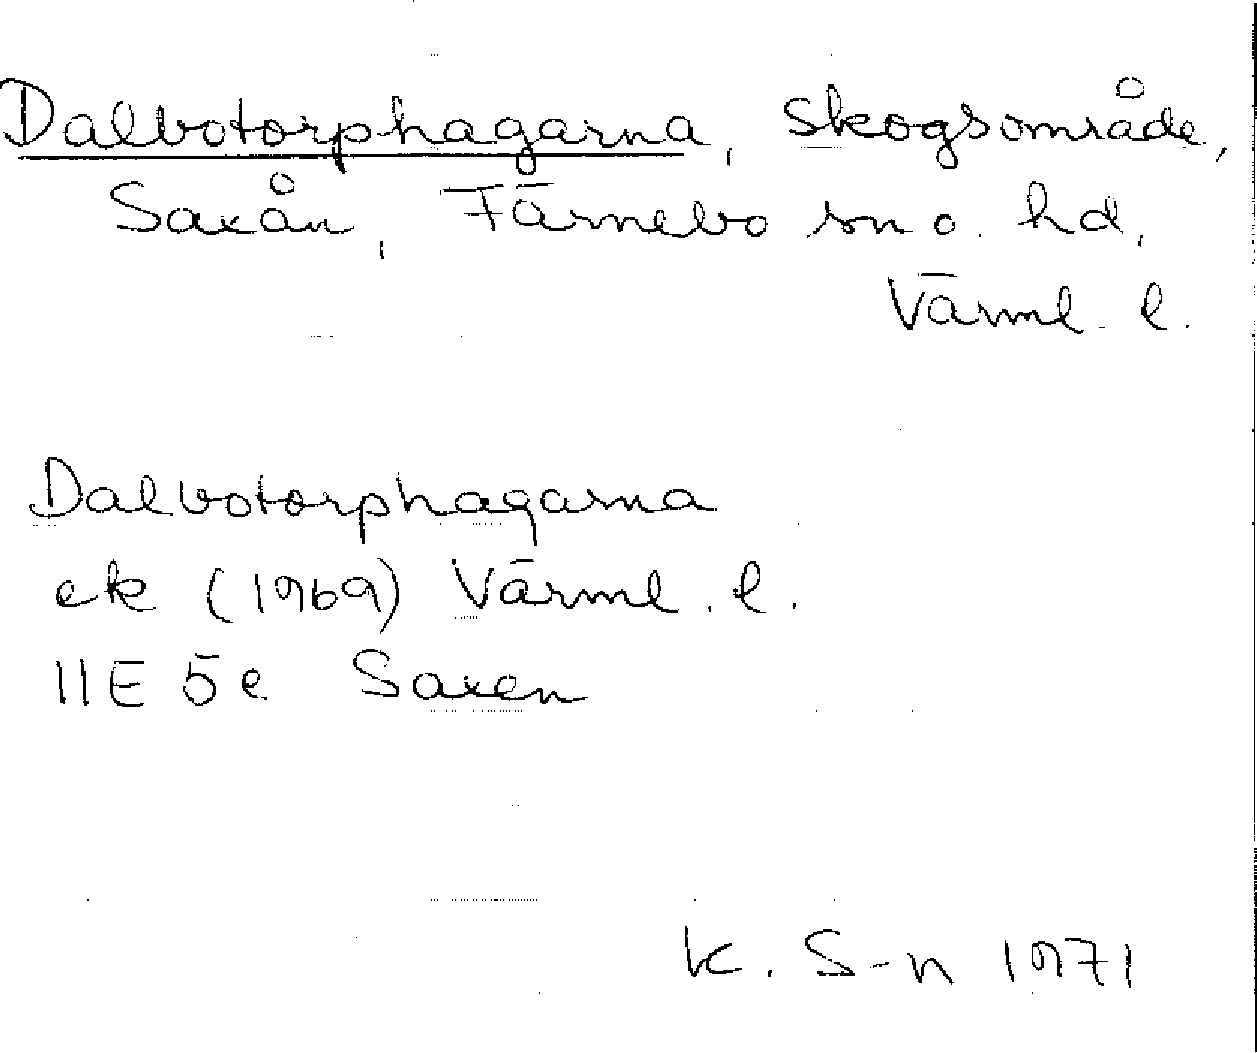 Dalbotorphagarna, skogsområde,
Saxån, Färnebo sn o. hd,
Värml. l.
Dalbotorphagarna
ek (1969) Värml. l.
11E 5e Saxen
K. S-n 1971